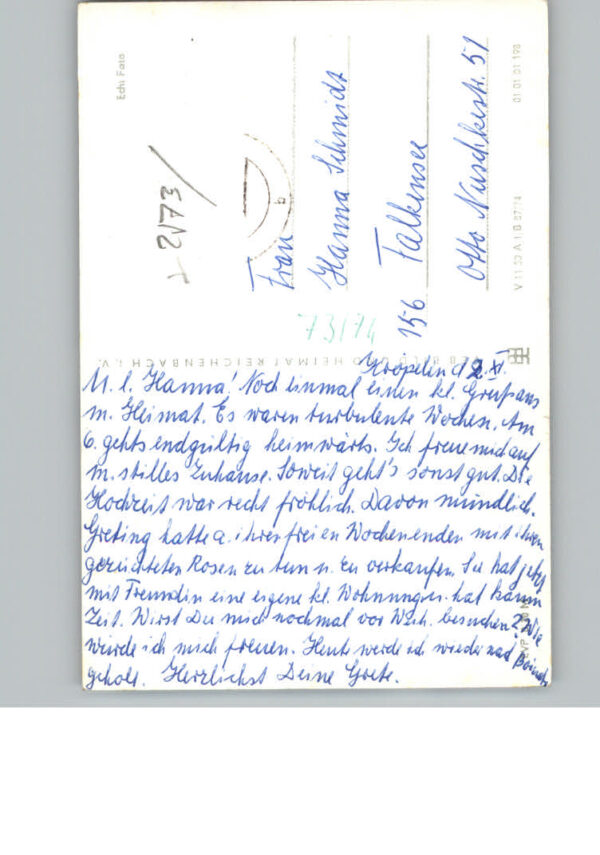 Echt Foto
273/
b
Frau
Hanna Schmidt
156 Falkensee
Otto Nuschkestr. 51
73/74
V 11 50 A 1 B 87/14
01 01 01 198
VEB BILD UND HEIMAT REICHENBACH i.V.
Kröpelin d 2. XI.
M. l. Hanna! Noch einmal einen kl. Gruß aus
m. Heimat. Es waren turbulente Wochen. Am
6. gehts endgültig heimwärts. Ich freue mich auf
m. stilles Zuhause. Soweit geht's sonst gut. Die
Hochzeit war recht fröhlich. Davon mündlich.
Greting hatte a. ihren freien Wochenenden mit ihren
gezüchteten Rosen zu tun u. zu verkaufen. Sie hat jetzt
mit Freundin eine eigene kl. Wohnung u. hat kaum
Zeit. Wirst Du mich nochmal vor Weih. besuchen? Wie
würde ich mich freuen. Heute werde ich wieder nach
geholt. Herzlichst Deine Grete.